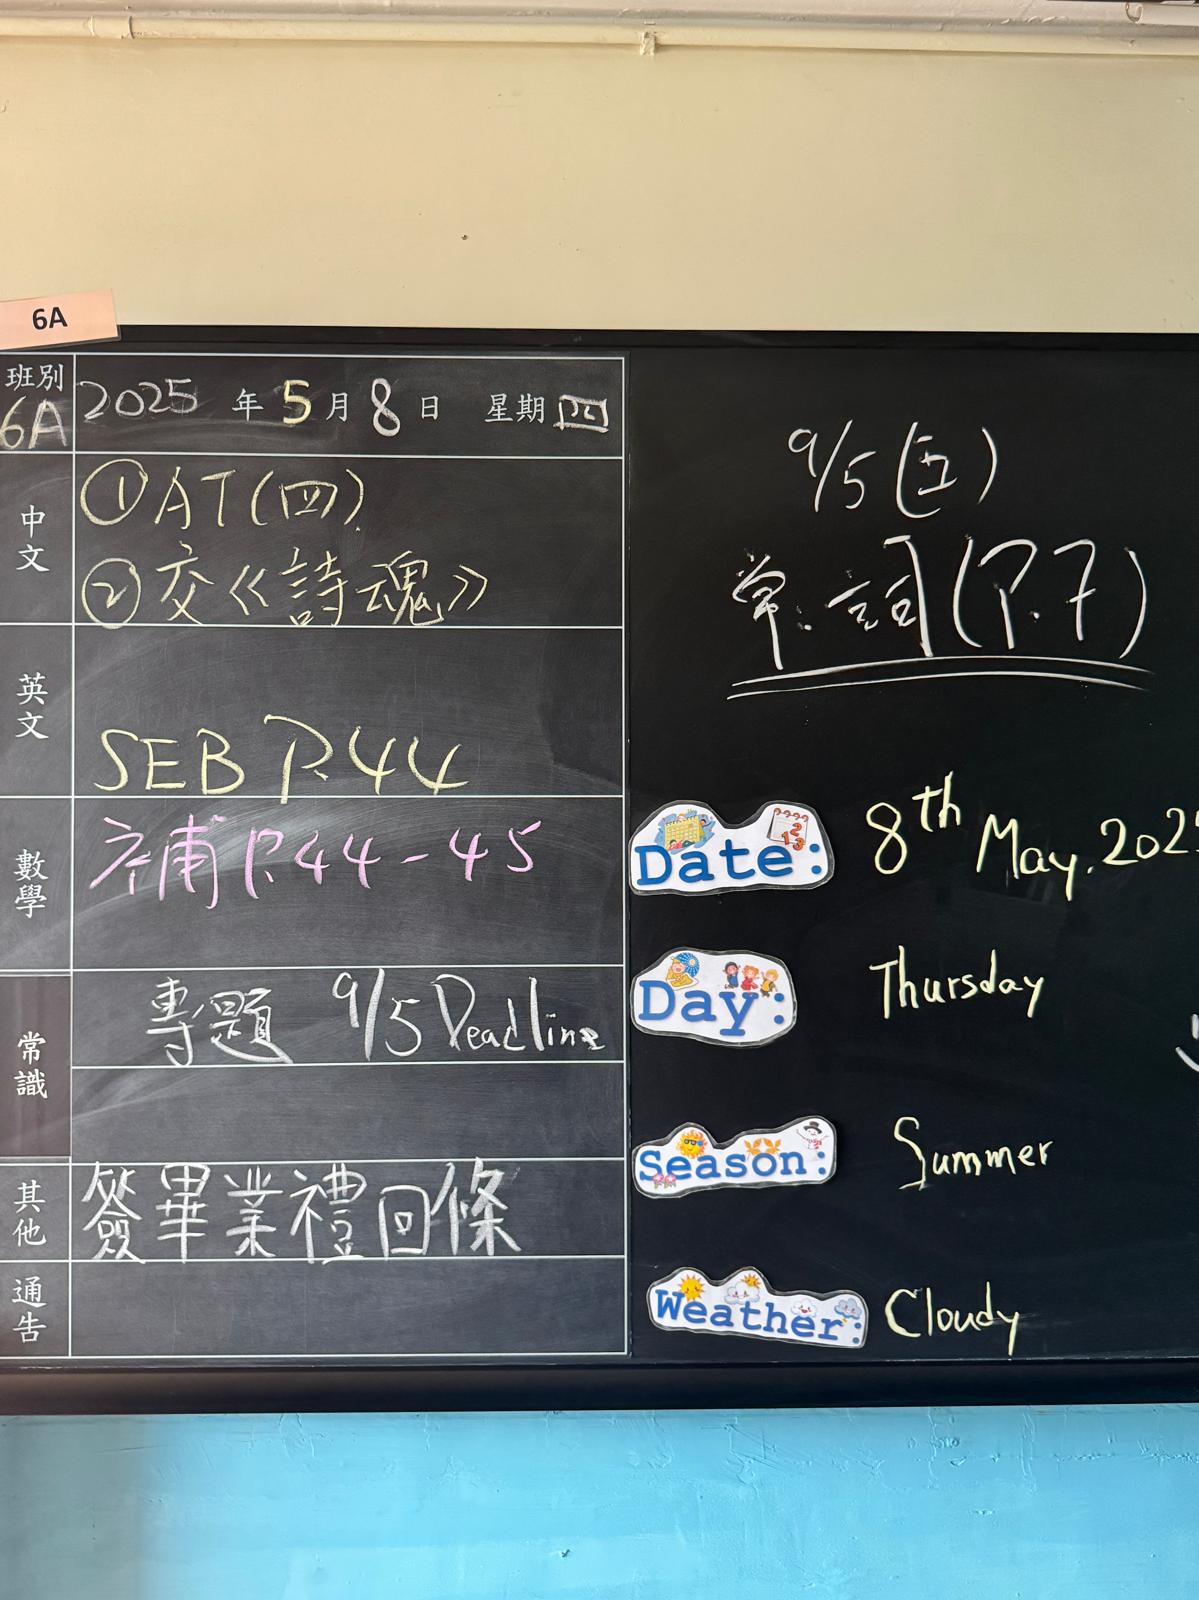 6A
班別
6A
2025 年 5 月 8 日 星期四
中文
①AT(四)
②交《詩魂》
英文
SEB P.44
數學
補 P.44-45
常識
專題 9/5 Deadline
其他
簽畢業禮回條
通告
9/5 (五)
常.詞(P.7)
Date: 8th May, 2025
Day: Thursday
Season: Summer
Weather: Cloudy